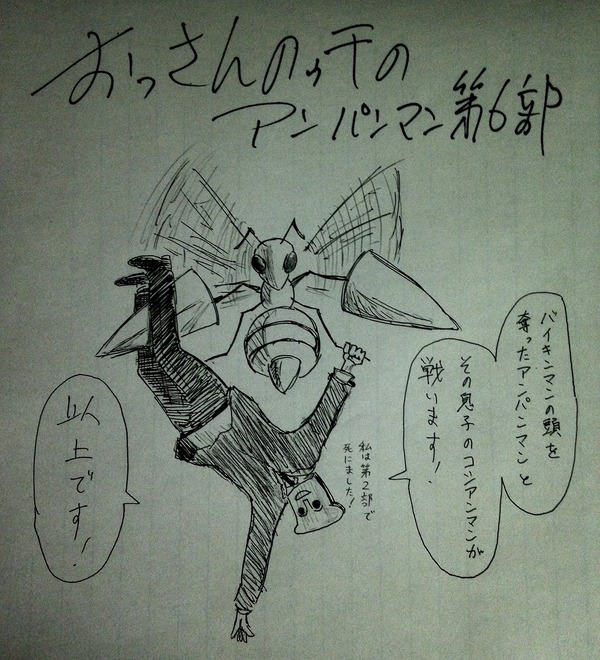 おっさんのゥ干の
アンパンマン第6部
バイキンマンの頭を
奪ったアンパンマンと
その息子のコシアンマンが
戦います!
私は第2部で
死にました!
以上です!